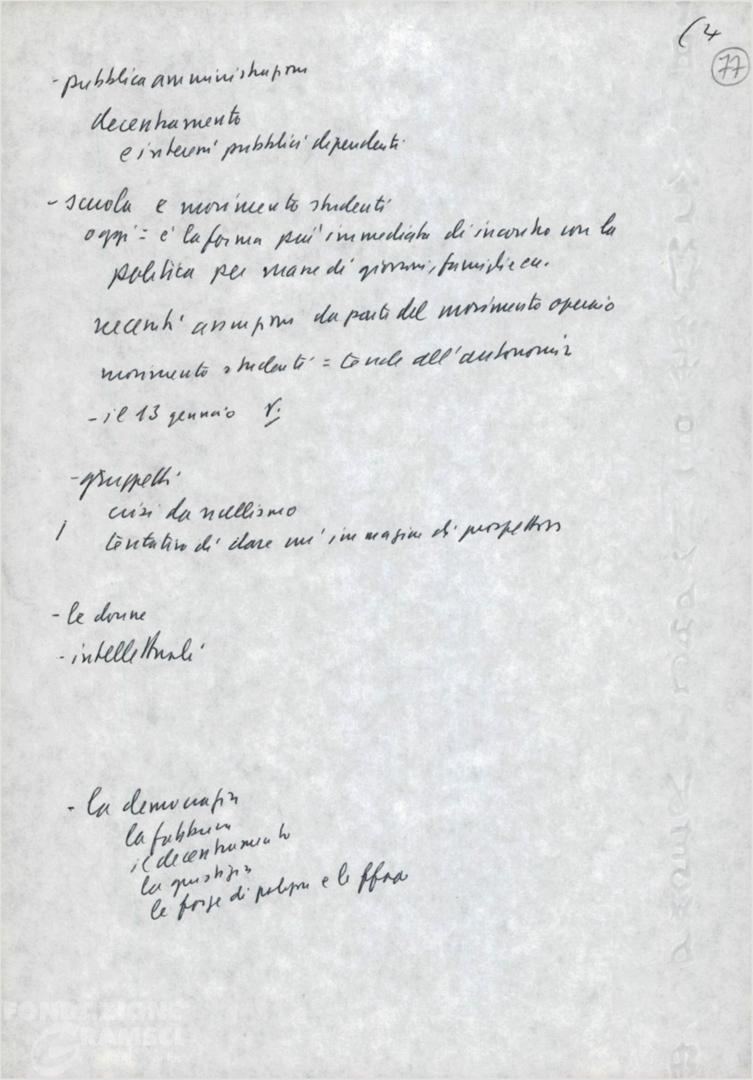 (4
77
- pubblica amministrazione
decentramento
e interessi pubblici dipendenti
- scuola e movimento studenti
oggi = è la forma più immediata di incontro con la
politica per masse di giovani, famiglie ecc.
necessità assunzione da parte del movimento operaio
movimento studenti = tende all'autonomia
- il 13 gennaio v.
- gruppetti
crisi da nullismo
tentativo di dare un'immagine di prospettiva
- le donne
- intellettuali
- la democrazia
la fabbrica
il decentramento
la giustizia
le forze di polizia e le ffaa
FONDAZIONE
GRAMSCI